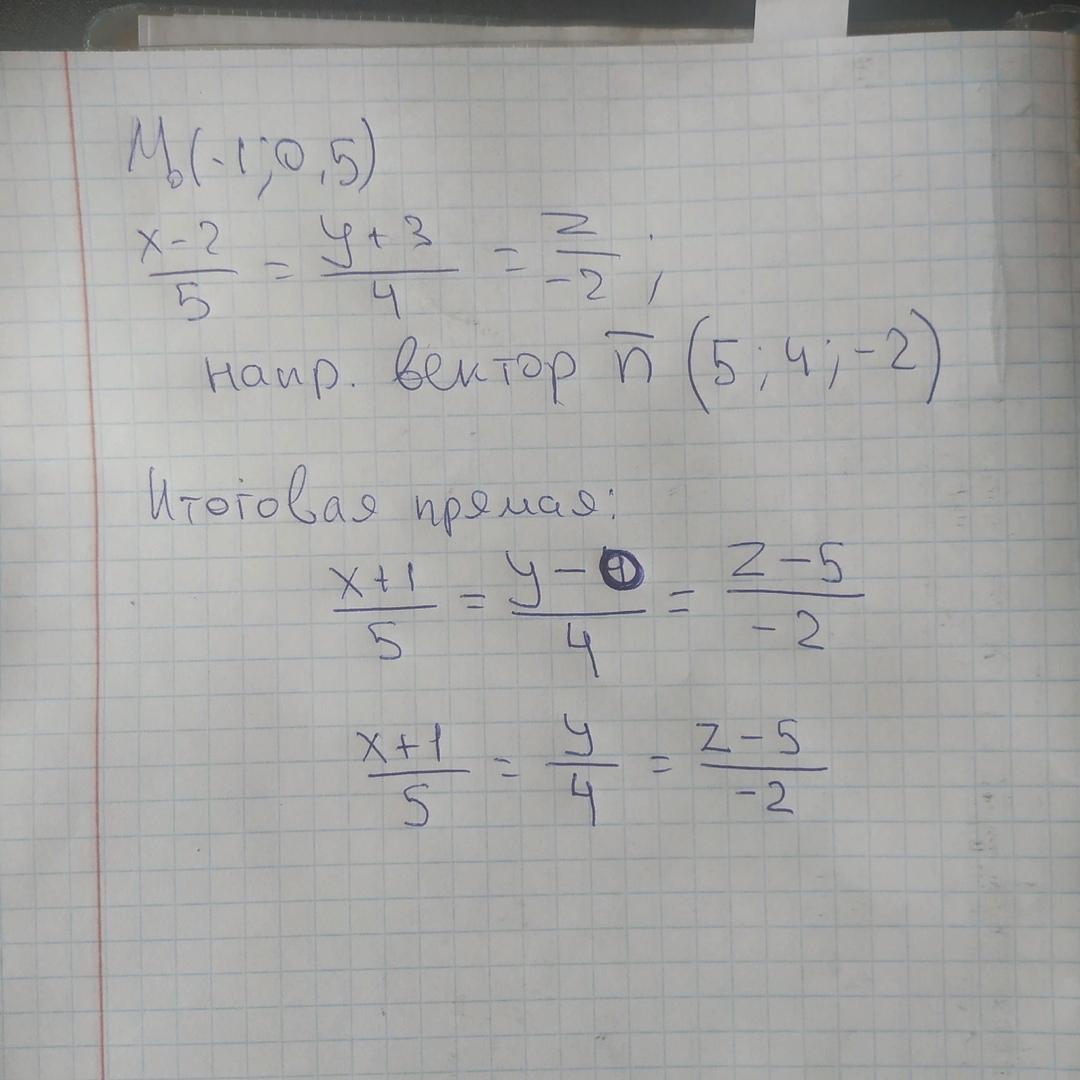 M₀(-1;0,5)
x-2/5 = y+3/4 = z/-2;
напр. вектор n̅ (5;4;-2)
Итоговая прямая:
x+1/5 = y-0/4 = z-5/-2
x+1/5 = y/4 = z-5/-2